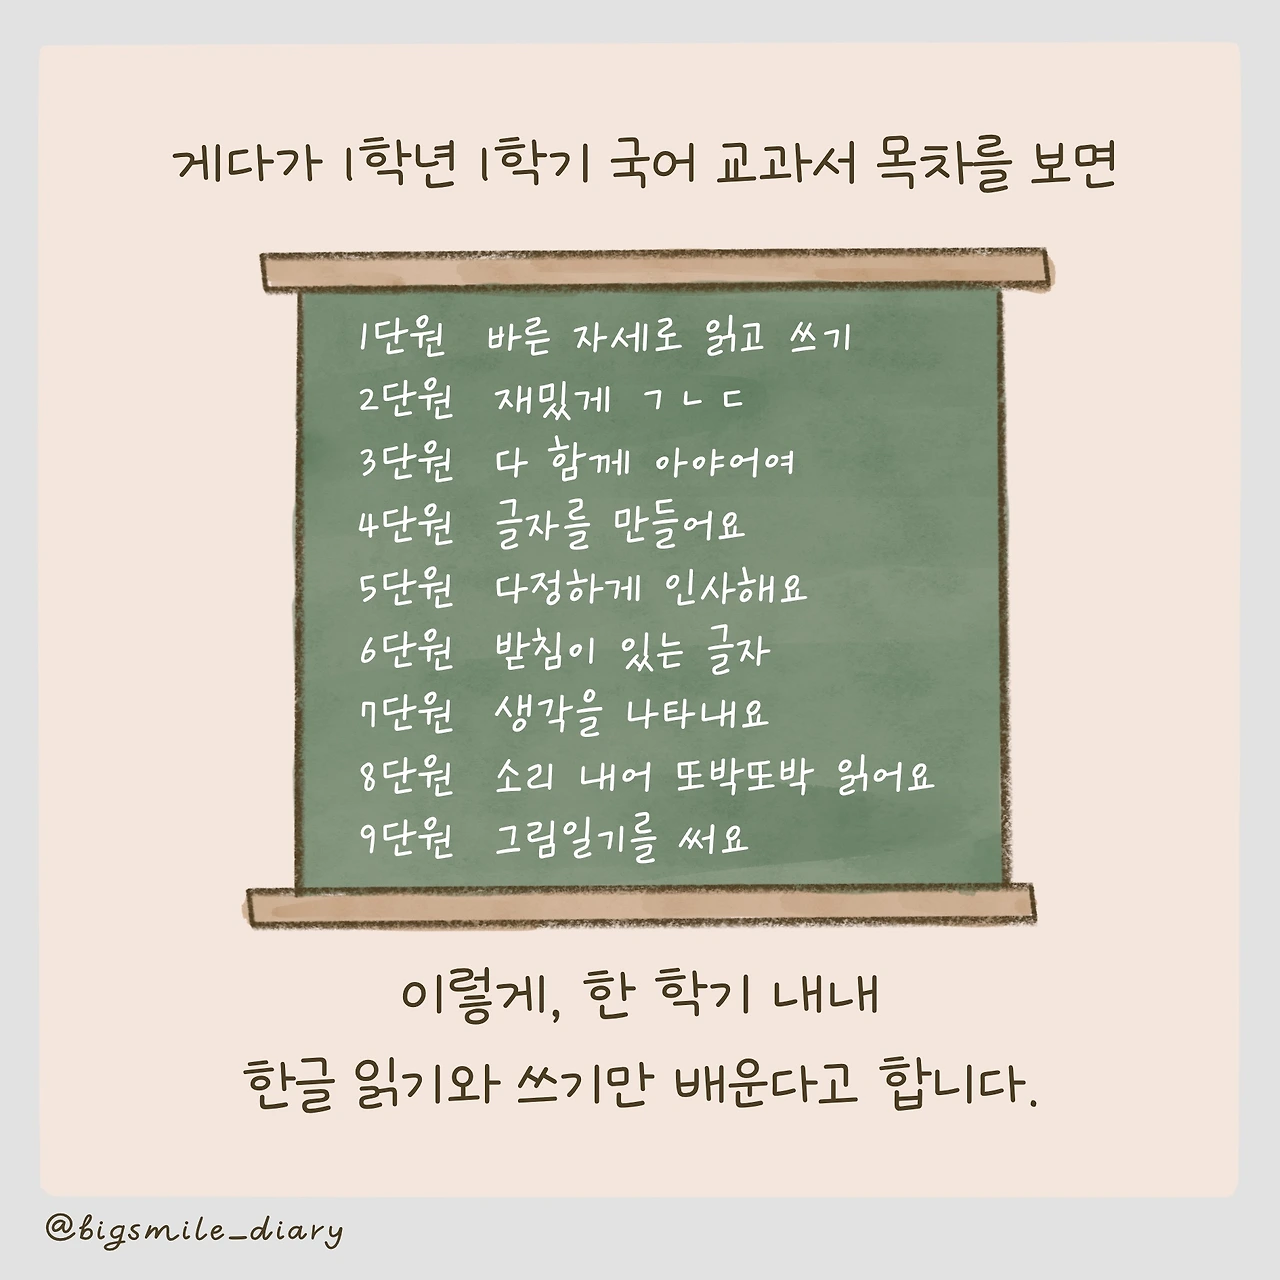 게다가 1학년 1학기 국어 교과서 목차를 보면
1단원 바른 자세로 읽고 쓰기
2단원 재밌게 ㄱㄴㄷ
3단원 다 함께 아야어여
4단원 글자를 만들어요
5단원 다정하게 인사해요
6단원 받침이 있는 글자
7단원 생각을 나타내요
8단원 소리 내어 또박또박 읽어요
9단원 그림일기를 써요
이렇게, 한 학기 내내
한글 읽기와 쓰기만 배운다고 합니다.
@bigsmile_diary